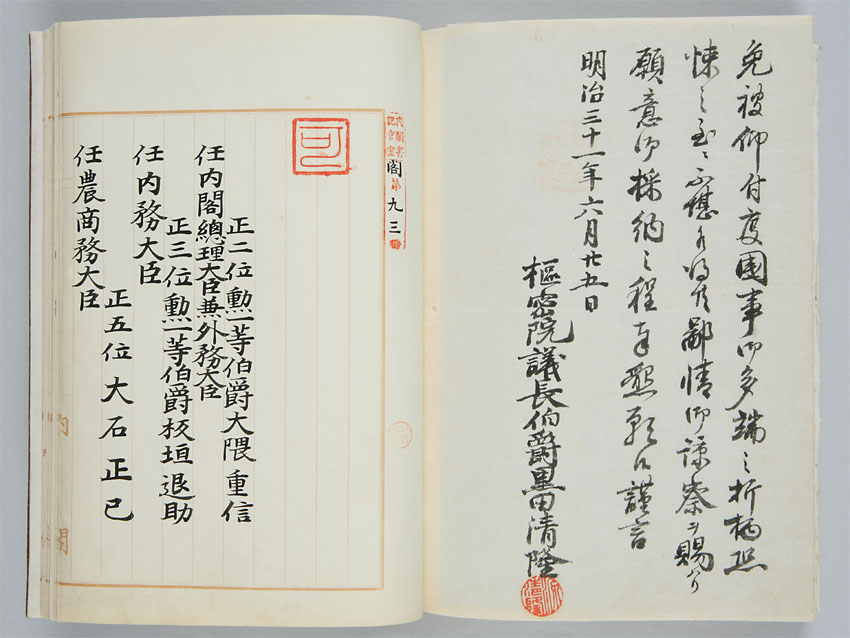 免被仰付度國事御多端之折柄恐
悚之至ニ不堪候得共鄙情御諒察ヲ賜ハリ
願意御採納之程奉懇願候謹言
明治三十一年六月廿五日
樞密院議長伯爵黒田清隆
閣第九三號
可
正二位勲一等伯爵大隈重信
任内閣總理大臣兼外務大臣
正三位勲一等伯爵板垣退助
任内務大臣
正五位大石正巳
任農商務大臣
内閣